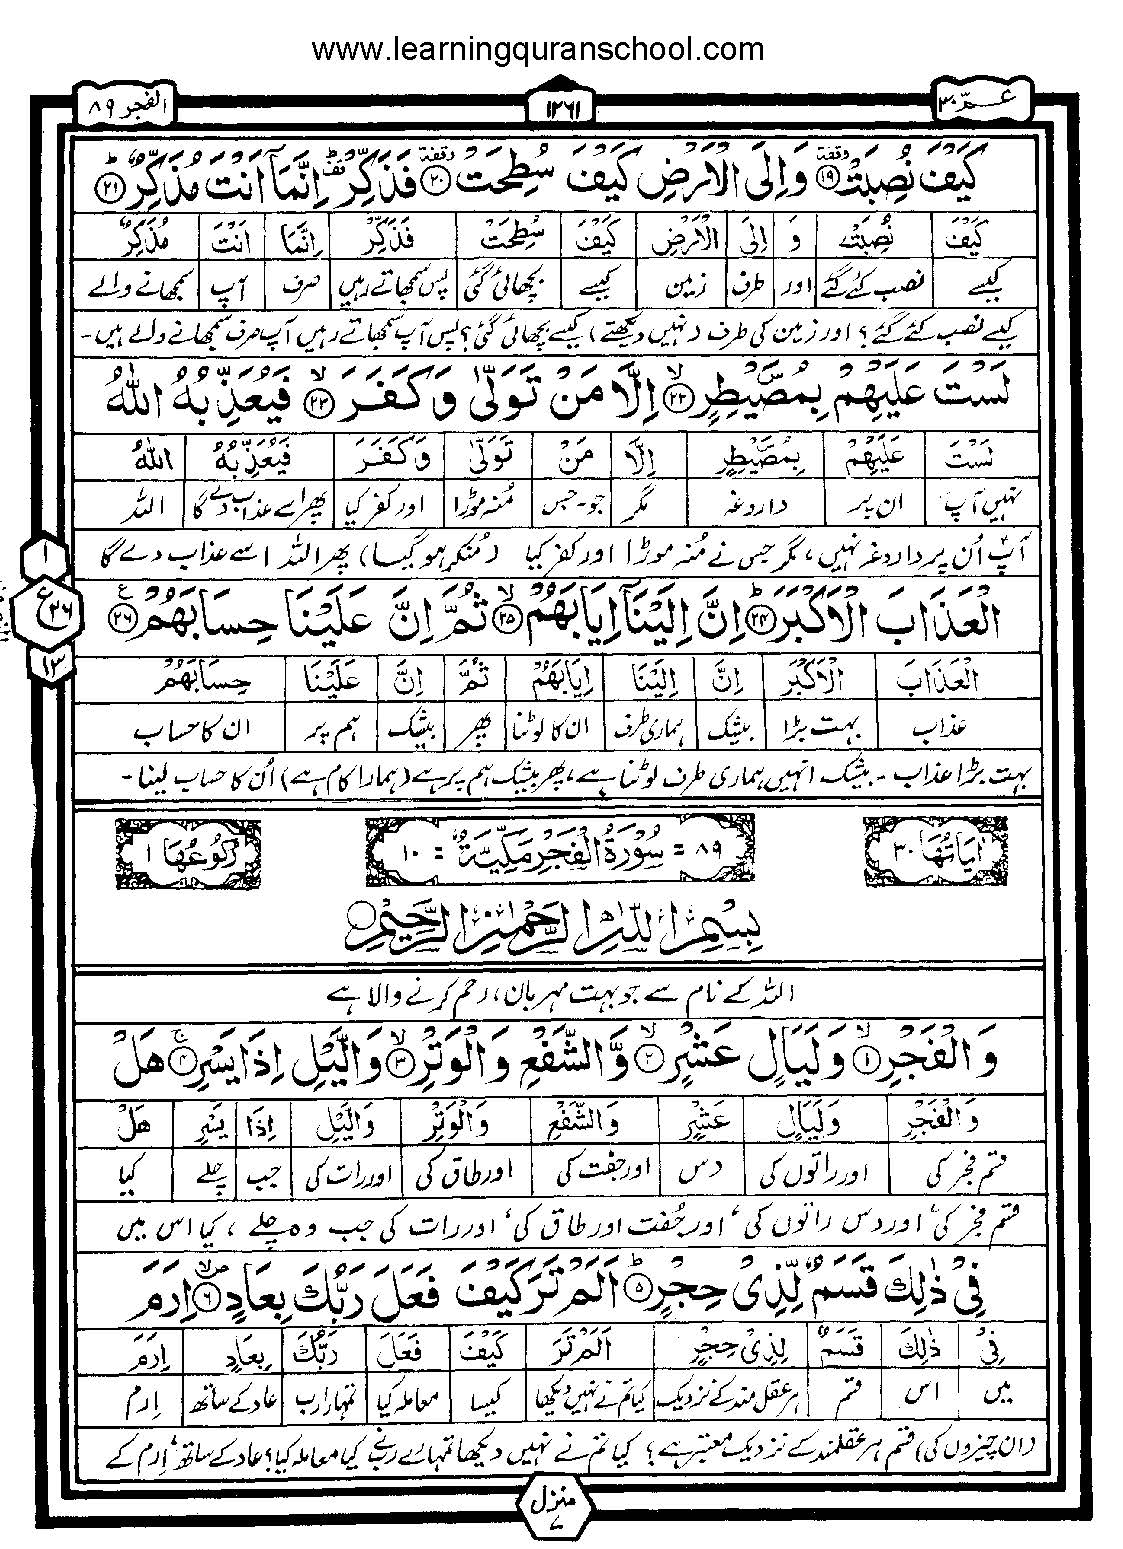 www.learningquranschool.com
عمّ ٣٠
١٢٦١
الفجر ٨٩
كَيْفَ نُصِبَتْ ﴿١٩﴾ وقفة وَاِلَى الْاَرْضِ كَيْفَ سُطِحَتْ ﴿٢٠﴾ وقفة فَذَكِّرْ قف اِنَّمَاۤ اَنْتَ مُذَكِّرٌ ﴿٢١﴾ ط
كَيْفَ نُصِبَتْ وَ اِلَى الْاَرْضِ كَيْفَ سُطِحَتْ فَذَكِّرْ اِنَّمَا اَنْتَ مُذَكِّرٌ
کیسے نصب کئے گئے اور طرف زمین کیسے بچھائی گئی پس سمجھاتے رہیں صرف آپ سمجھانے والے
کیسے نصب کئے گئے؟ اور زمین کی طرف (نہیں دیکھتے) کیسے بچھائی گئی؟ پس آپ سمجھاتے رہیں آپ صرف سمجھانے والے ہیں۔
لَسْتَ عَلَيْهِمْ بِمُصَۜيْطِرٍ ﴿٢٢﴾ لا اِلَّا مَنْ تَوَلّٰى وَكَفَرَ ﴿٢٣﴾ لا فَيُعَذِّبُهُ اللّٰهُ
لَسْتَ عَلَيْهِمْ بِمُصَۜيْطِرٍ اِلَّا مَنْ تَوَلّٰى وَكَفَرَ فَيُعَذِّبُهُ اللّٰهُ
نہیں آپ ان پر داروغہ مگر جو۔جس مُنہ موڑا اور کفر کیا پھر اسے عذاب دے گا اللہ
آپ اُن پر داروغہ نہیں، مگر جس نے مُنہ موڑا اور کفر کیا (مُنکر ہوگیا) پھر اللہ اسے عذاب دے گا
١
ع ٢٦
١٣
الْعَذَابَ الْاَكْبَرَ ﴿٢٤﴾ ط اِنَّ اِلَيْنَاۤ اِيَابَهُمْ ﴿٢٥﴾ لا ثُمَّ اِنَّ عَلَيْنَا حِسَابَهُمْ ﴿٢٦﴾ ع
الْعَذَابَ الْاَكْبَرَ اِنَّ اِلَيْنَا اِيَابَهُمْ ثُمَّ اِنَّ عَلَيْنَا حِسَابَهُمْ
عذاب بہت بڑا بیشک ہماری طرف ان کا لوٹنا پھر بیشک ہم پر ان کا حساب
بہت بڑا عذاب۔ بیشک انہیں ہماری طرف لوٹنا ہے، پھر بیشک ہم پر ہے (ہمارا کام ہے) اُن کا حساب لینا۔
اٰيَاتُهَا ٣٠
٨٩ = سُوْرَةُ الْفَجْرِ مَكِّيَّةٌ = ١٠
رُكُوْعُهَا ١
بِسْمِ اللّٰهِ الرَّحْمٰنِ الرَّحِيْمِ
اللہ کے نام سے جو بہت مہربان، رحم کرنے والا ہے
وَالْفَجْرِ ﴿١﴾ لا وَلَيَالٍ عَشْرٍ ﴿٢﴾ لا وَّالشَّفْعِ وَالْوَتْرِ ﴿٣﴾ لا وَالَّيْلِ اِذَا يَسْرِ ﴿٤﴾ ج هَلْ
وَالْفَجْرِ وَلَيَالٍ عَشْرٍ وَالشَّفْعِ وَالْوَتْرِ وَالَّيْلِ اِذَا يَسْرِ هَلْ
قسم فجر کی اور راتوں کی دس اور جفت کی اور طاق کی اور رات کی جب چلے کیا
قسم فجر کی، اور دس راتوں کی، اور جُفت اور طاق کی، اور رات کی جب وہ چلے، کیا اس میں
فِيْ ذٰلِكَ قَسَمٌ لِّذِيْ حِجْرٍ ﴿٥﴾ ط اَلَمْ تَرَ كَيْفَ فَعَلَ رَبُّكَ بِعَادٍ ﴿٦﴾ صلا اِرَمَ
فِيْ ذٰلِكَ قَسَمٌ لِذِيْ حِجْرٍ اَلَمْ تَرَ كَيْفَ فَعَلَ رَبُّكَ بِعَادٍ اِرَمَ
میں اس قسم ہر عقل مند کے نزدیک کیا تم نے نہیں دیکھا کیسا معاملہ کیا تمہارا رب عاد کے ساتھ اِرم
(ان چیزوں کی) قسم ہر عقلمند کے نزدیک معتبر ہے؟ کیا تم نے نہیں دیکھا تمہارے رب نے کیا معاملہ کیا؟ عاد کے ساتھ، اِرم کے
منزل ٧